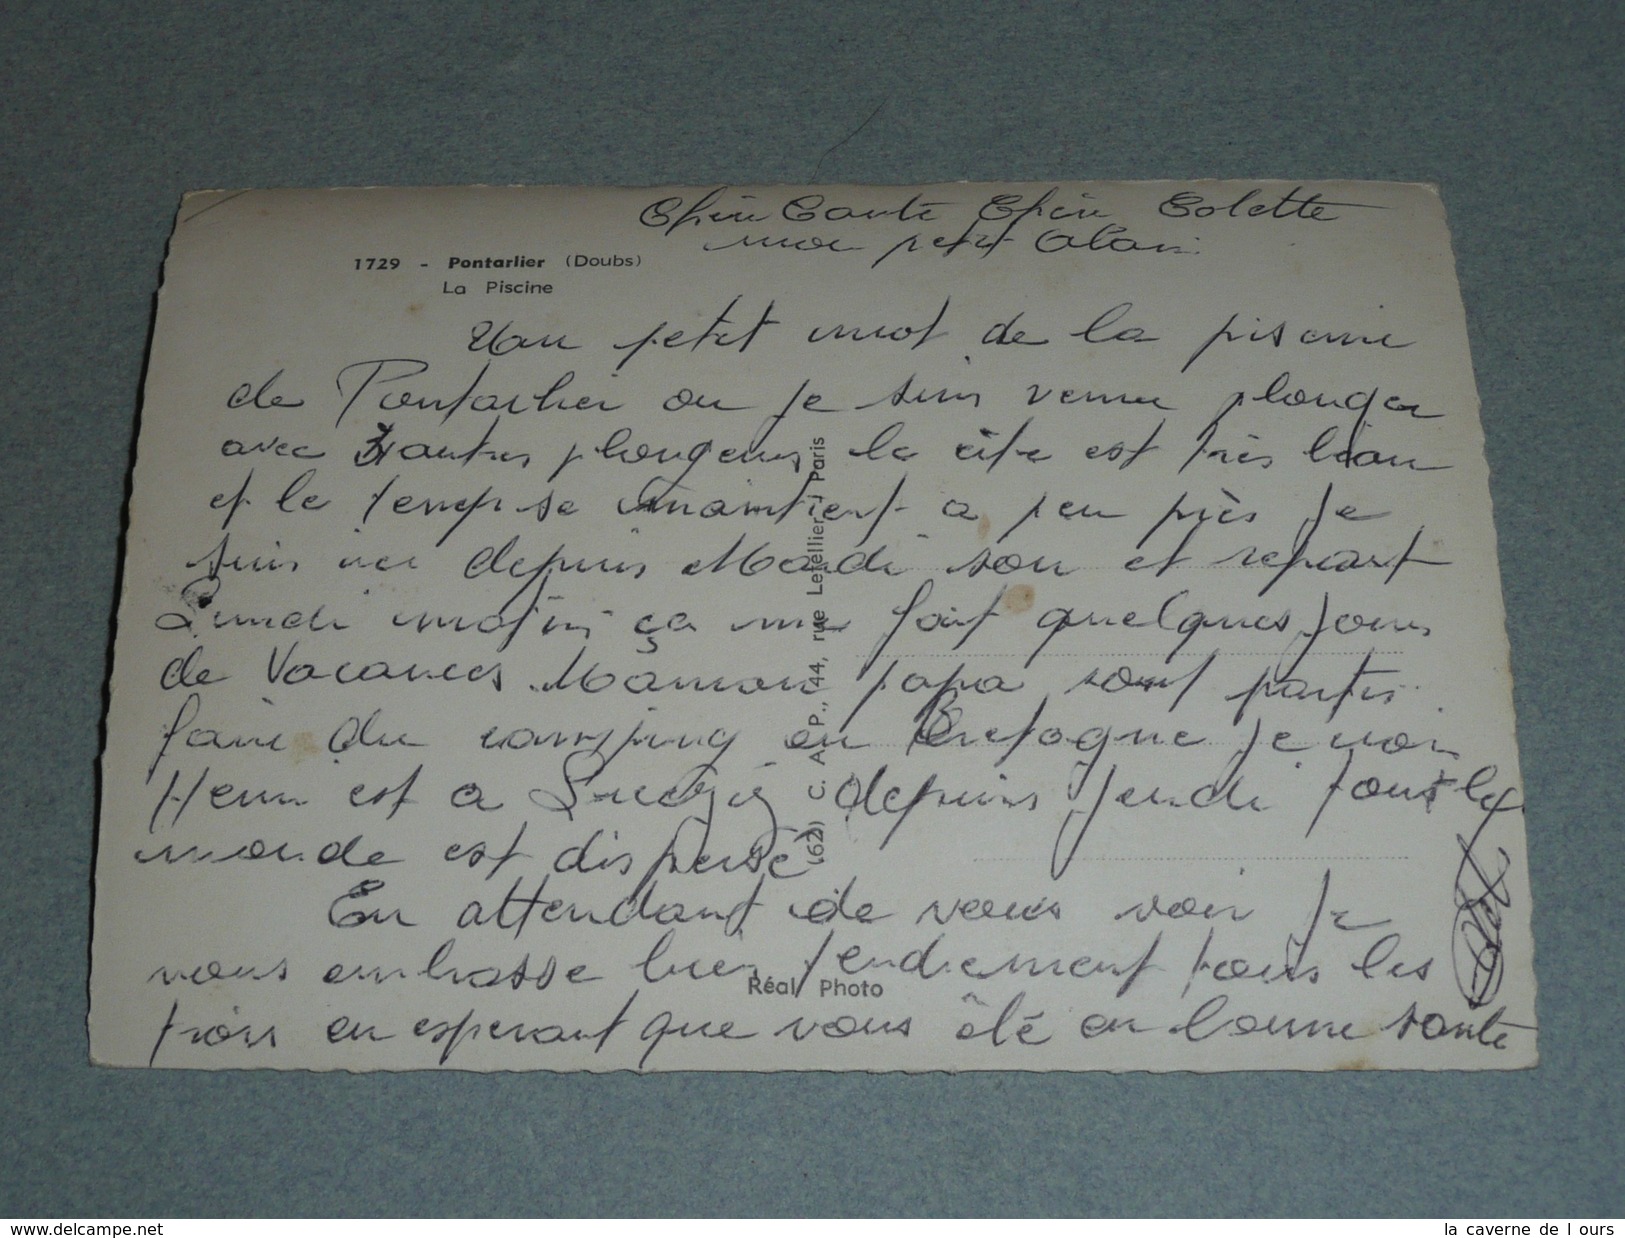 Chère Tante Chère Colette
mon petit Alain
1729 - Pontarlier (Doubs)
La Piscine
Un petit mot de la piscine
de Pontarlier ou je suis venu plonger
avec 3 autres plongeurs le site est très beau
et le temp se maintient a peu près je
suis ici depuis Mardi soir et repart
Lundi matin ça me fait quelques jours
de Vacances Maman papa sont partis
faire du camping en Bretagne je
Henri est a depuis jeudi tout le
monde est dispersé
En attendant de vous voir je
vous embrasse bien tendrement tous les
trois en esperant que vous été en bonne sante
(62) C. A. P., 44, rue Letellier, Paris
Réal Photo
www.delcampe.net
la caverne de l ours